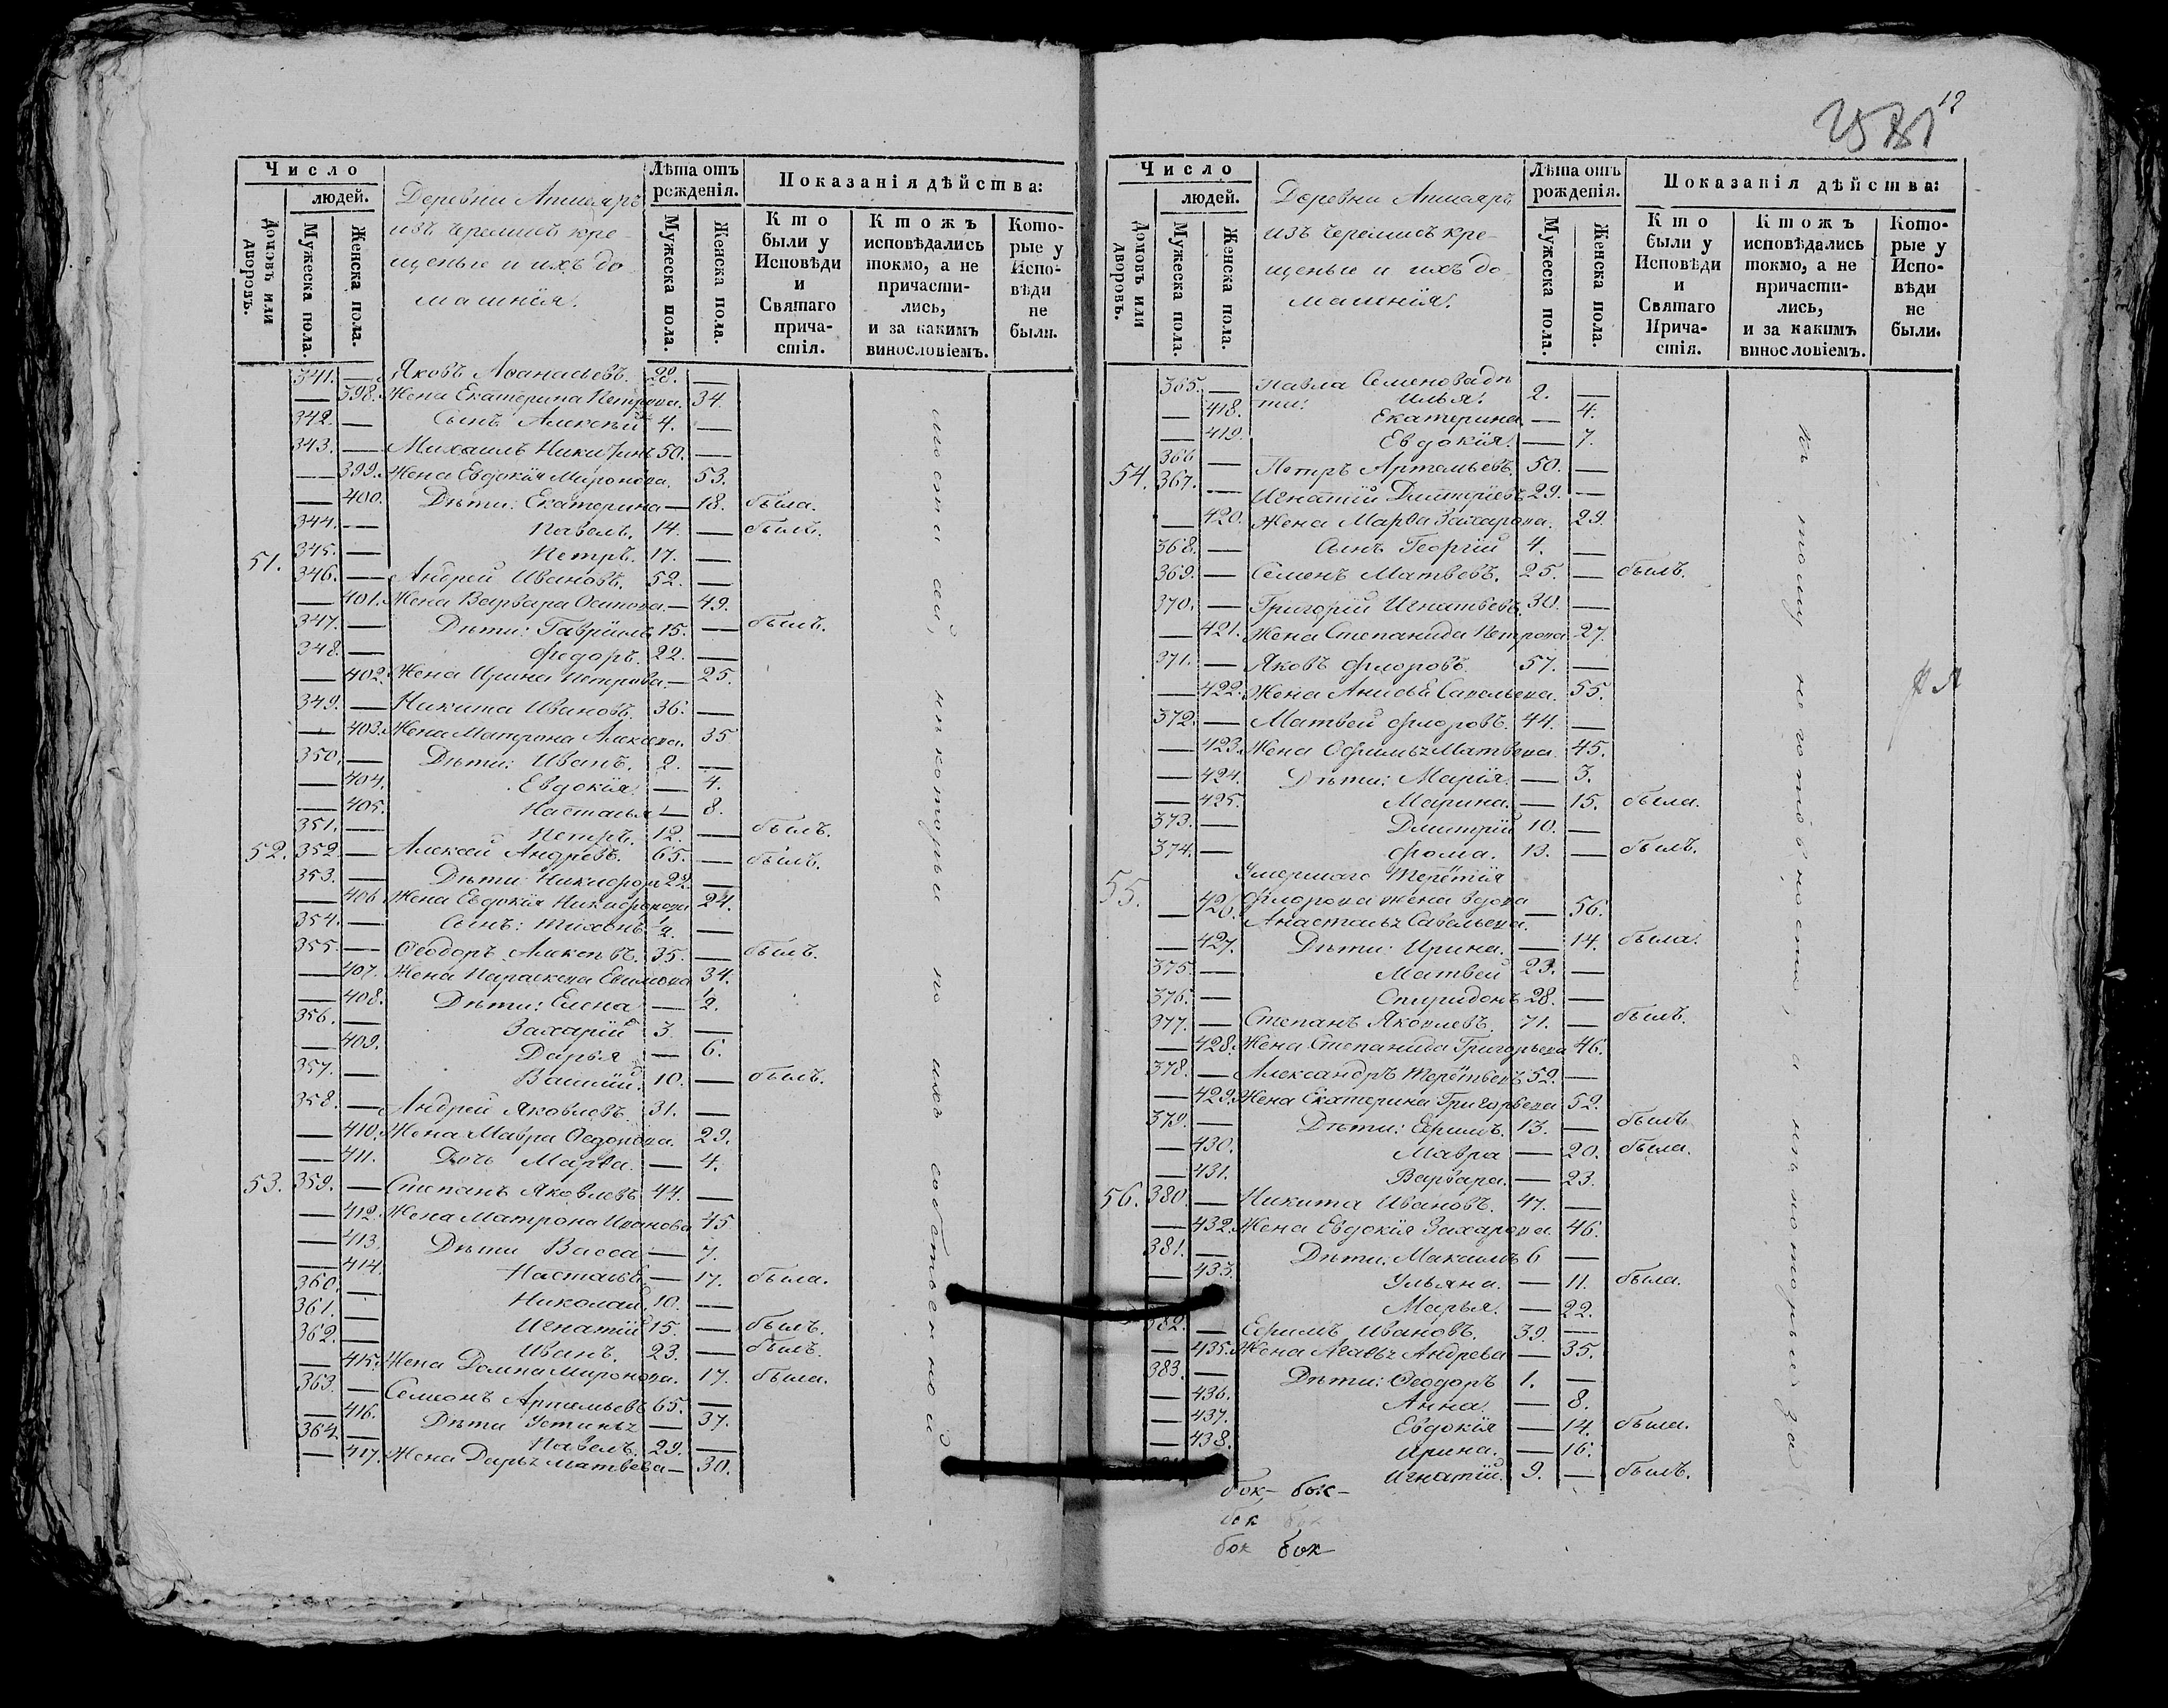 Число
людей.
Домовъ или дворовъ.
Мужеска пола.
Женска пола.
Деревни Апшаяръ
изъ черемисъ кре-
щеные и ихъ до-
машнія.
Лѣта отъ
рожденія.
Мужеска пола.
Женска пола.
Показанія дѣйства:
Кто
были у
Исповѣди
и
Святаго
прича-
стія.
Ктожъ
исповѣдались
токмо, а не
причасти-
лись,
и за какимъ
винословіемъ.
Кото-
рые у
Испо-
вѣди
не
были.
341. — Яковъ Аѳанасьевъ. 28. —
— 398. Жена Екатерина Петрова. 34.
342. — Сынъ Алексѣй 4. —
343. — Михаилъ Никитинъ 50. —
— 399. Жена Евдокія Миронова. 53.
— 400. Дѣти: Екатерина — 18. была.
344. — Павелъ. 14. — былъ.
345. — Петръ. 17. —
51. 346. — Андрей Ивановъ. 52. —
— 401. Жена Варвара Осипова. — 49.
347. — Дѣти: Гавріилъ 15. — былъ.
348. — Федоръ. 22. —
— 402. Жена Ирина Петрова. — 25.
349. — Никита Ивановъ. 36. —
— 403. Жена Матрона Алексѣева. 35
350. — Дѣти: Иванъ. 2. —
— 404. Евдокія. — 4.
— 405. Настасья — 8.
351. — Петръ. 12. — былъ.
52. 352. — Алексей Андреевъ. 65. — былъ.
353. — Дѣти: Никифоръ 22. —
— 406 Жена Евдокія Никифорова 24.
354. — Сынъ: Тихонъ ½. —
355. — Ѳеодоръ Алексѣевъ. 35. — былъ.
— 407. Жена Параскева Евимова 34.
— 408. Дѣти: Елена — ½.
356. — Захарій 3. —
— 409. Дарья — 6.
357. — Василій. 10. — былъ.
358. — Андрей Яковлевъ. 31. —
— 410. Жена Мавра Ѳедорова. 29.
— 411. Дочь Марѳа. — 4.
53. 359. — Степанъ Яковлевъ 44. —
— 412. Жена Матрона Иванова 45
— 413. Дѣти Васса — 7.
— 414. Настасья — 17. была.
360. — Николай 10. —
361. — Игнатій 15. — былъ.
362. — Иванъ. 23. — былъ.
— 415. Жена Домна Миронова. 17. была.
363. — Семионъ Артемьевъ 65. —
— 416. Дѣти Устинья — 37.
364. — Павелъ. 29. —
— 417. Жена Дарья Матвеева — 30.
нѣкоторыи по ихъ собственной
12
Число
людей.
Домовъ или дворовъ.
Мужеска пола.
Женска пола.
Деревни Апшаяръ
изъ черемисъ кре-
щеные и ихъ до-
машнія.
Лѣта отъ
рожденія.
Мужеска пола.
Женска пола.
Показанія дѣйства:
Кто
были у
Исповѣди
и
Святаго
Прича-
стія.
Ктожъ
исповѣдались
токмо, а не
причасти-
лись,
и за какимъ
винословіемъ.
Кото-
рые у
Испо-
вѣди
не
были.
365. — Павла Семенова дѣ
ти: Илья. 2. —
— 418. Екатерина — 4.
— 419. Евдокія. — 7.
366 — Петръ Артемьевъ. 50. —
54. 367. — Игнатій Димитріевъ 29. —
— 420. Жена Марѳа Захарова. 29.
368. — Сынъ Георгій 4. —
369. — Семенъ Матвеевъ. 25. — былъ.
370. — Григорій Игнатьевъ. 30. —
— 421. Жена Степанида Петрова 27.
371. — Яковъ Флоровъ. 57. —
— 422. Жена Анисья Савельева. 55.
372. — Матвей Флоровъ. 44. —
— 423. Жена Офимья Матвеева. 45.
— 424. Дѣти: Марія. — 3.
— 425. Марина. — 15. была.
373. — Дмитрій 10. —
374. — Фома. 13. — былъ.
55. Умершаго Терентія
— 426. Флорова жена вдова
Анастасья Савельева. — 56.
— 427. Дѣти: Ирина. — 14. была.
375. — Матвей 23. —
376. — Спиридонъ 28. —
377. — Степанъ Яковлевъ. 71. — былъ.
— 428. Жена Степанида Григорьева 46.
378. — Александръ Терентьевъ 52. —
— 429. Жена Екатерина Григорьева 52.
379. — Дѣти: Ефимъ. 13. — былъ
— 430. Мавра — 20. была.
— 431. Варвара. — 23.
56. 380. — Никита Ивановъ. 47. —
— 432. Жена Евдокія Захарова 46.
381. — Дѣти: Максимъ 6 —
— 433. Ульяна. — 11. была.
Марья. — 22.
382. — Ефимъ Ивановъ. 39. —
— 435. Жена Агаѳья Андреева — 35.
383. — Дѣти: Ѳеодоръ 1. —
— 436. Анна. — 8.
— 437. Евдокія — 14. была.
— 438. Ирина. — 16.
Игнатій. 9. — былъ.
къ тому неготовности, а нѣкоторыи за
бок- бок-
бок бок
бок бок